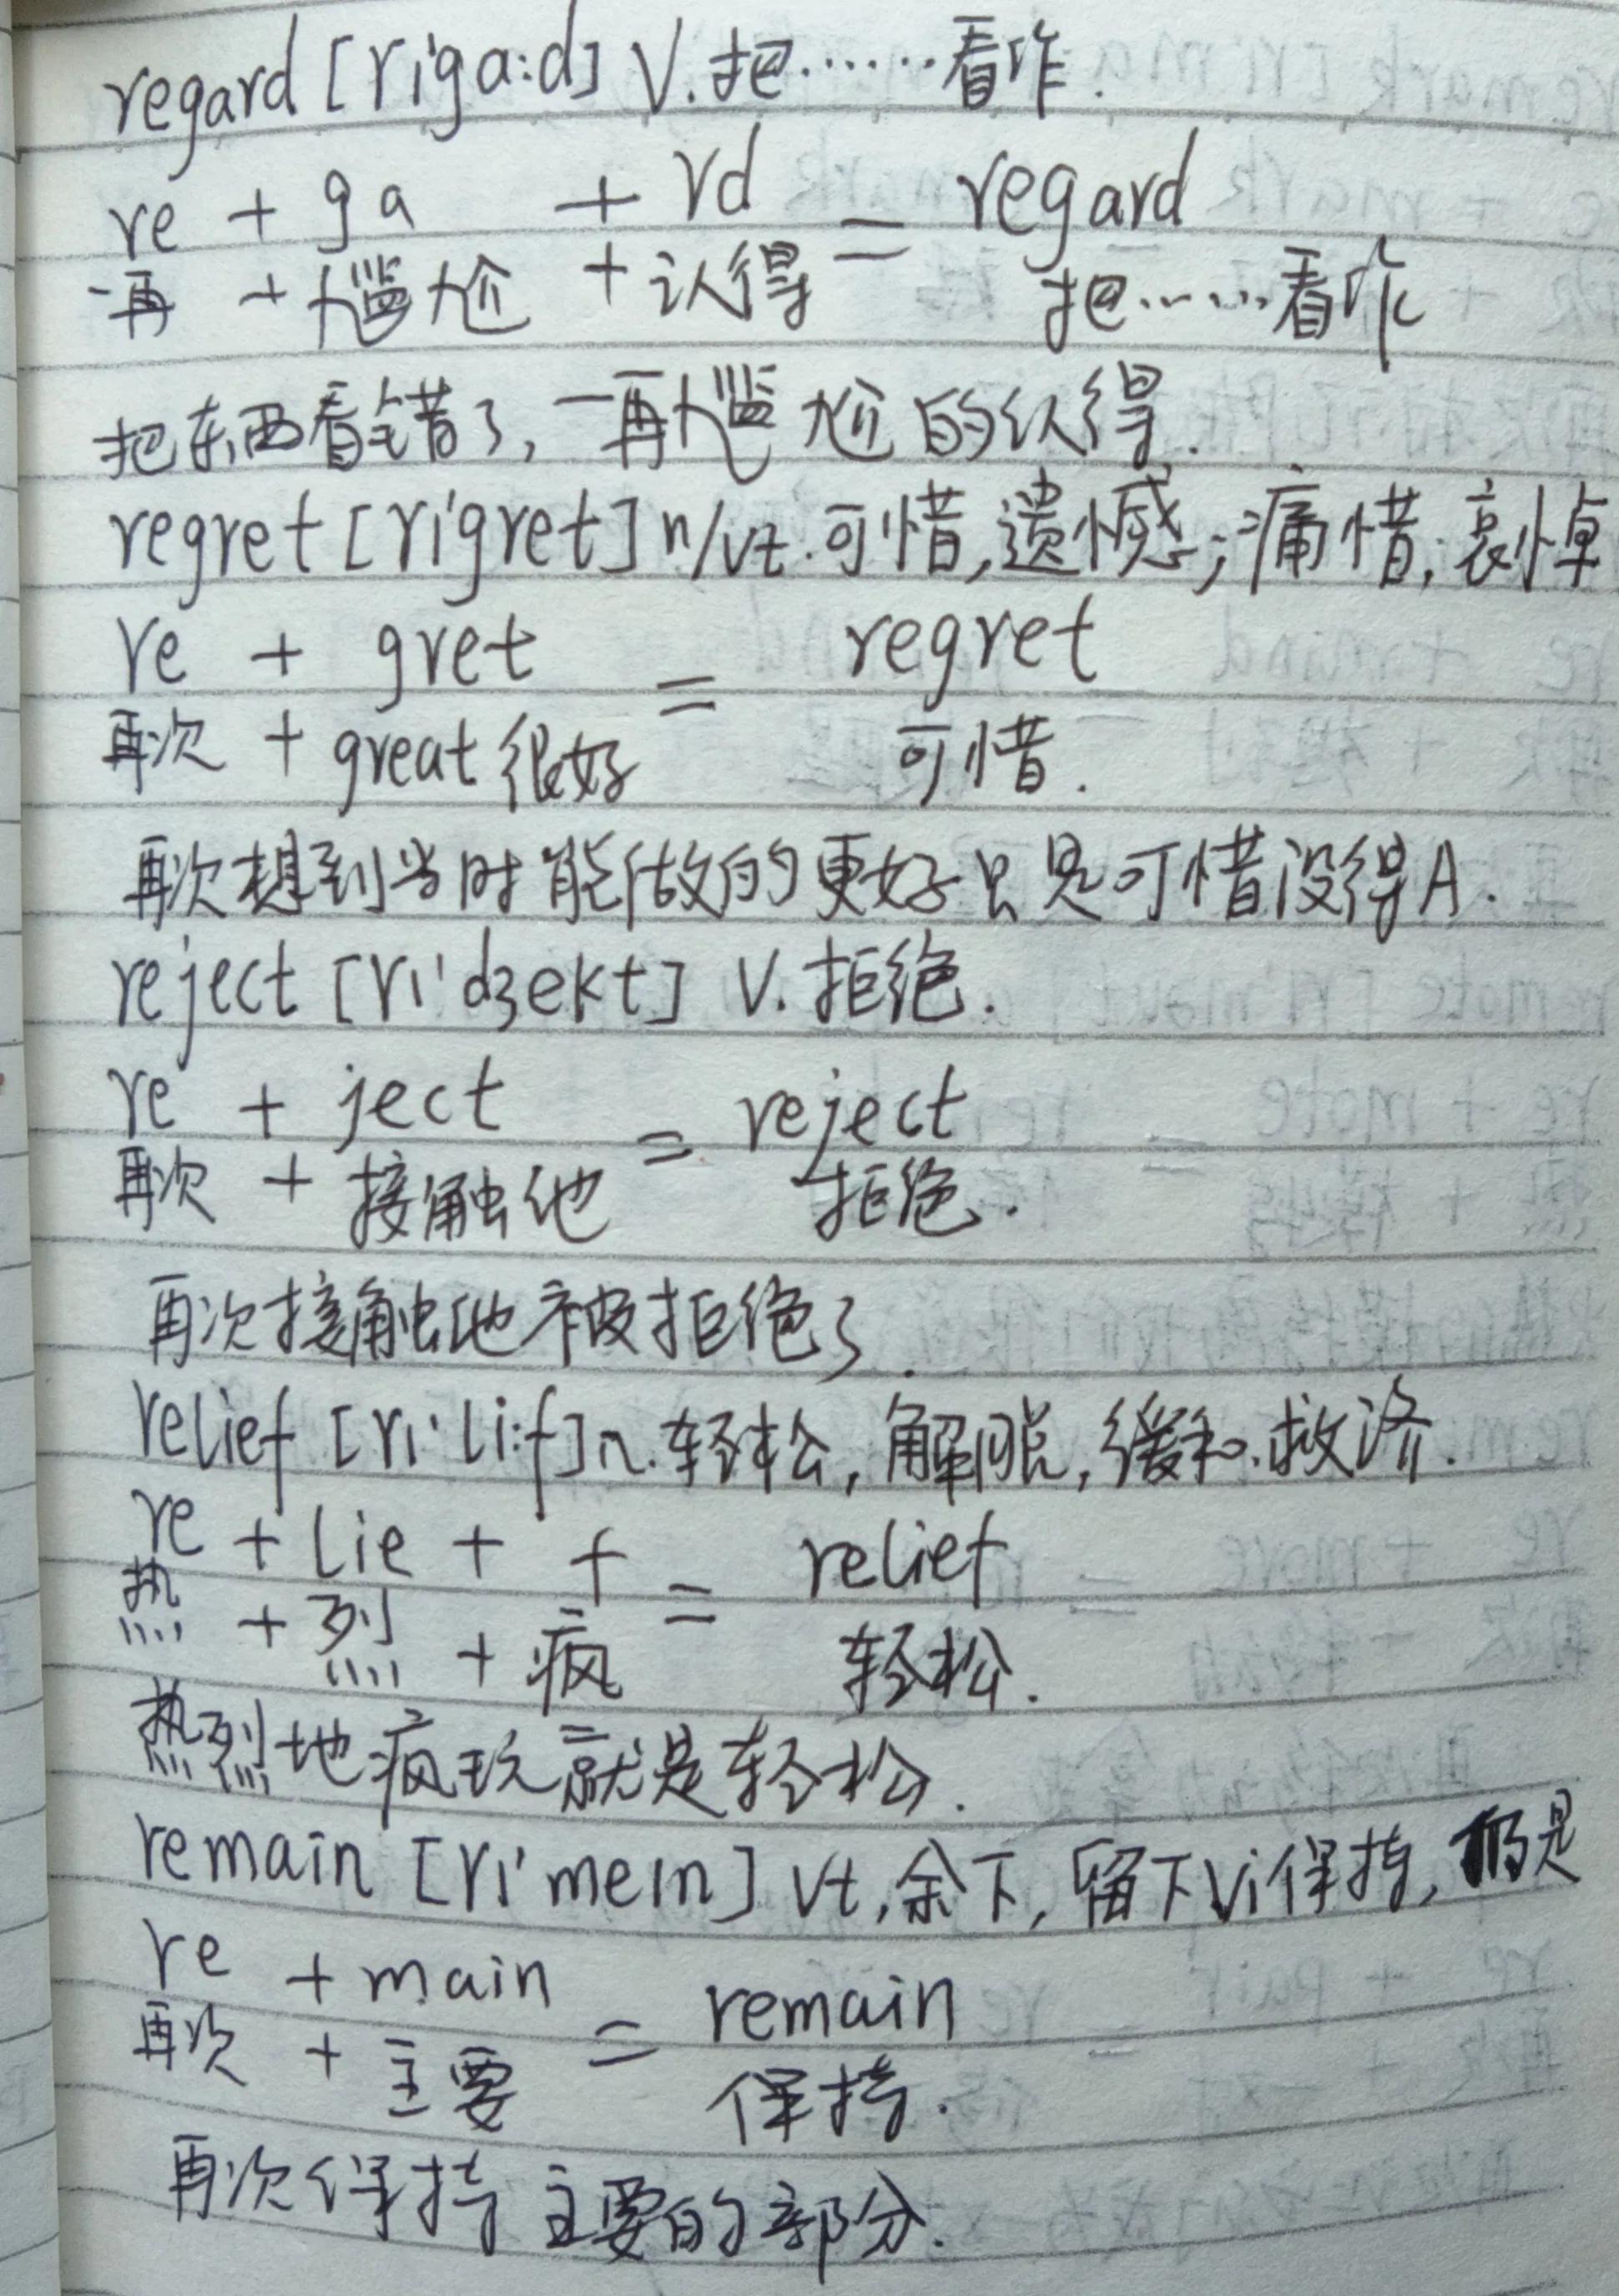 regard [ri'ga:d] v. 把……看作.
re + ga + rd = regard
一再 + 尴尬 + 认得 把……看作
把东西看错了, 一再尴尬的认得.
regret [ri'gret] n/vt. 可惜, 遗憾; 痛惜; 哀悼
re + gret = regret
再次 + great 很好 可惜.
再次想到当时能做的更好只是可惜没得A.
reject [rı'dʒekt] v. 拒绝.
re + ject = reject
再次 + 接触他 拒绝.
再次接触他被拒绝了.
relief [rı'li:f] n. 轻松, 解脱, 缓和. 救济.
re + lie + f = relief
热 + 烈 + 疯 轻松.
热烈地疯玩就是轻松.
remain [rı'meın] vt, 余下, 留下 vi 保持, 仍是
re + main = remain
再次 + 主要 保持.
再次保持主要的部分.